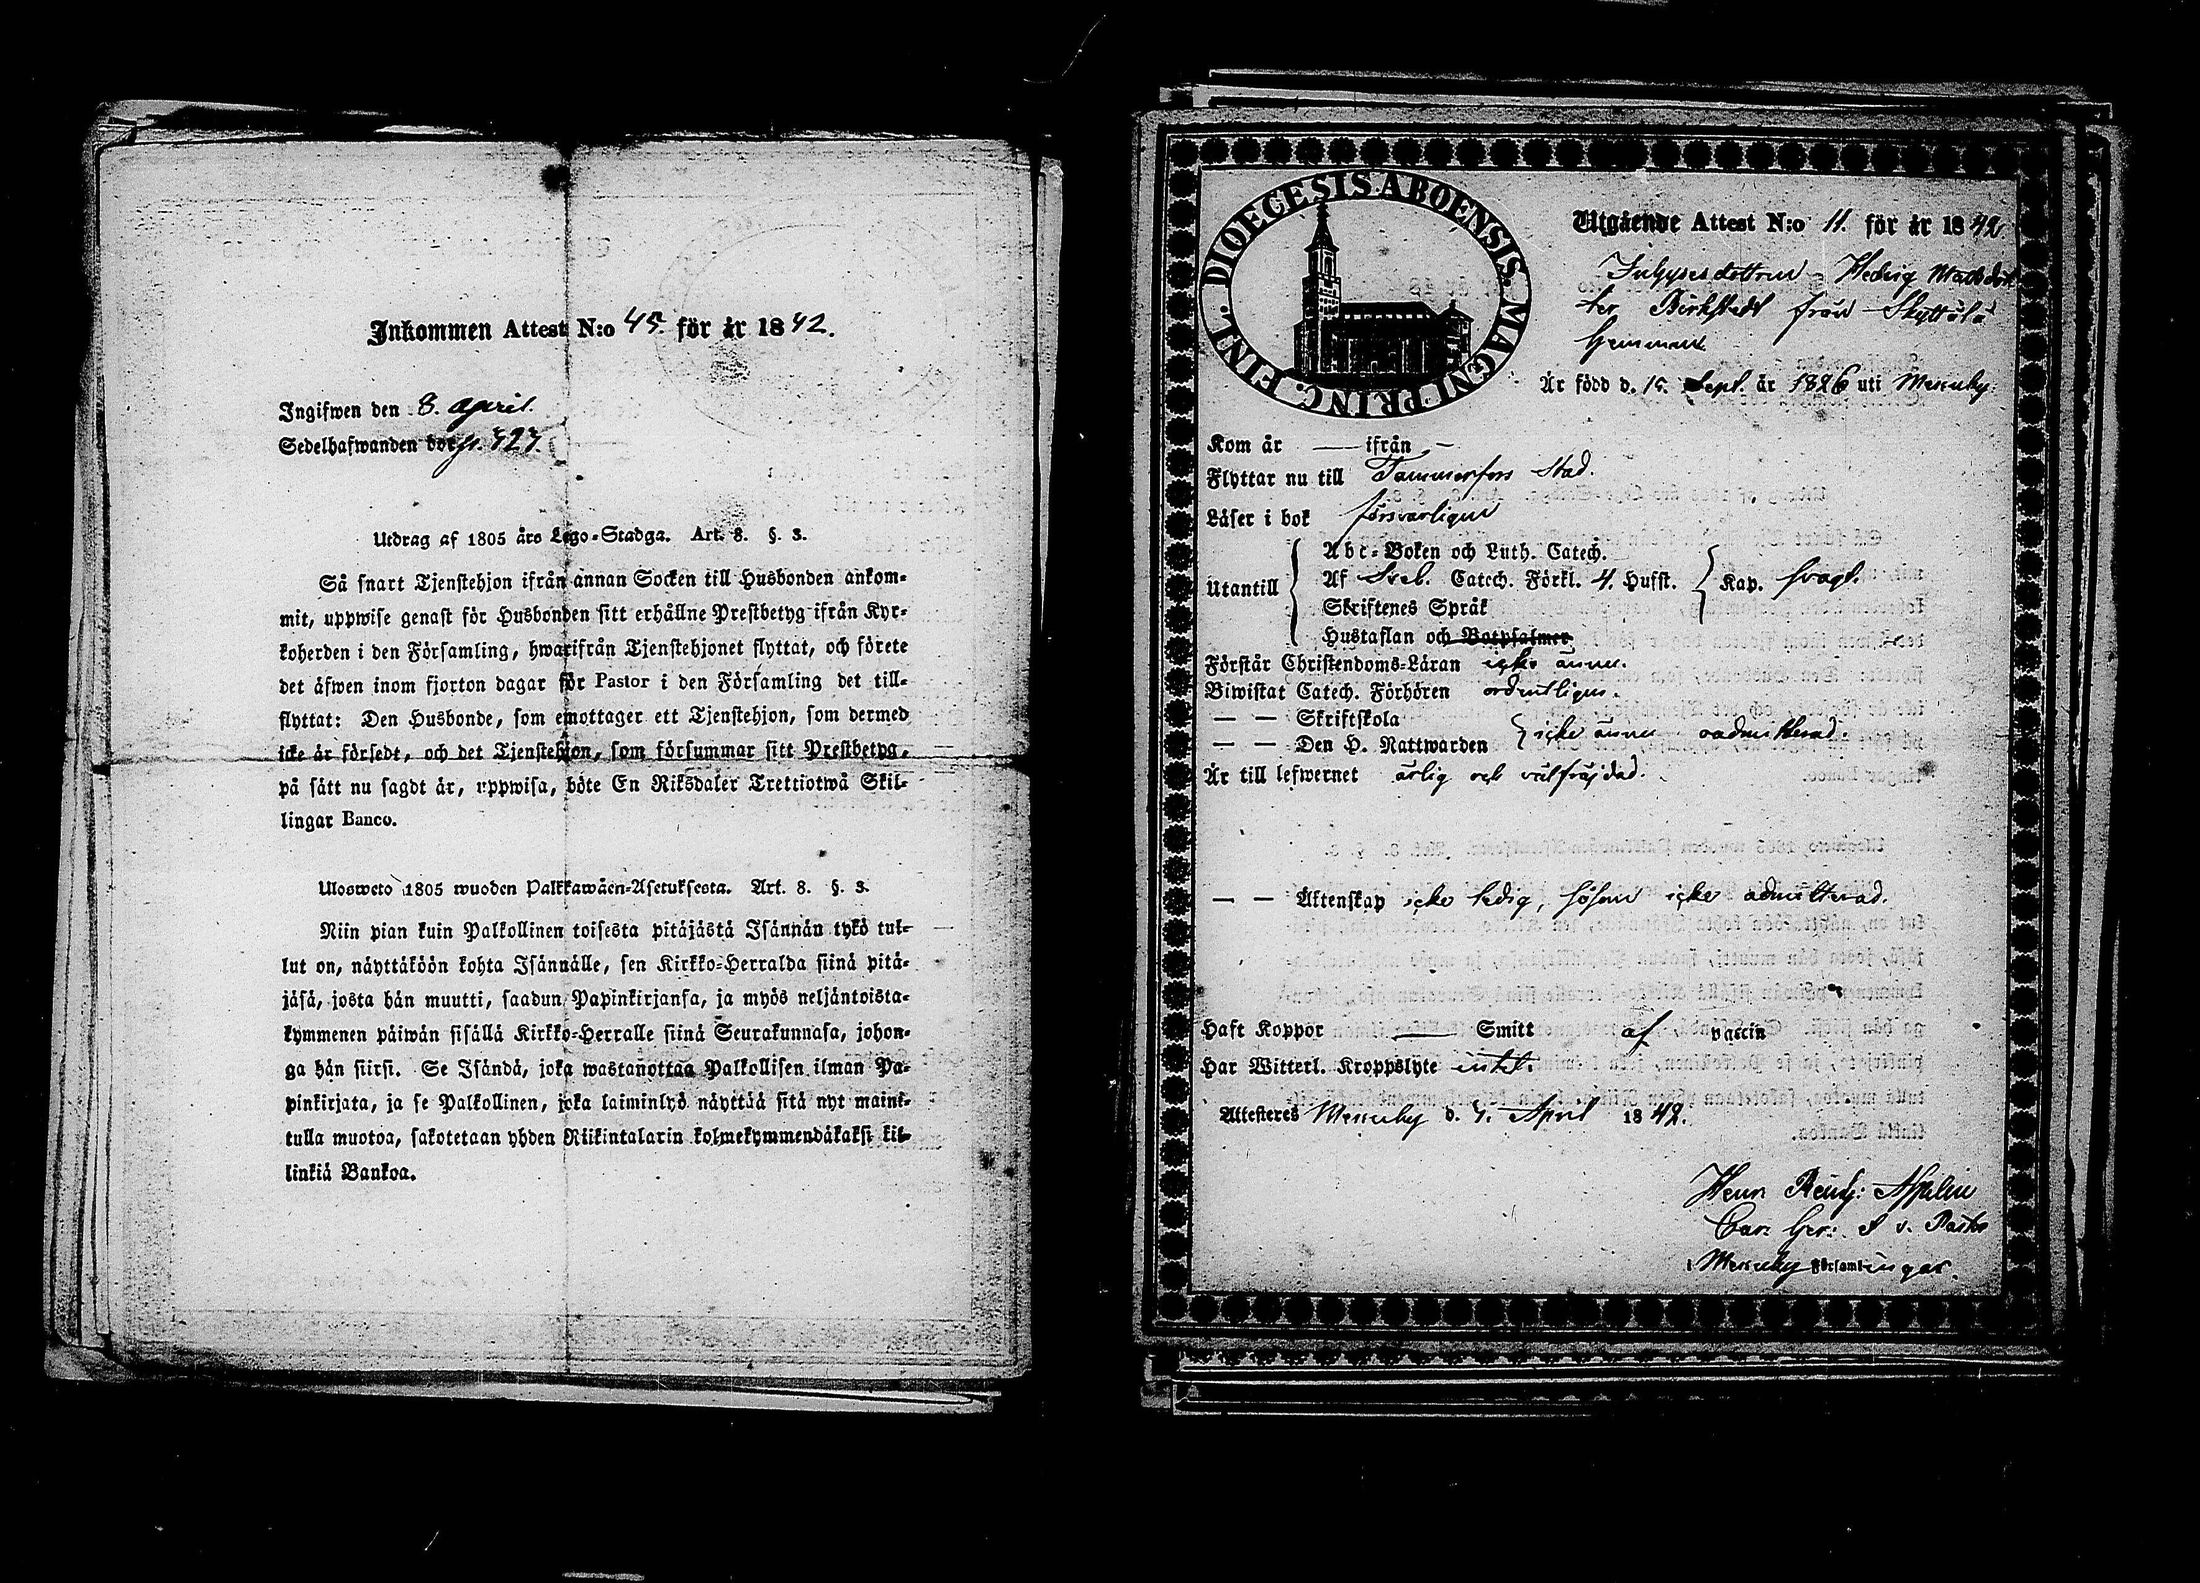 Inkommen Attest N:o 45. för år 1842.
Ingifwen den 8. April.
Sedelhafwanden bor p. 727.
Utdrag af 1805 års Lego-Stadga. Art. 8. §. 3.
Så snart Tjenstehjon ifrån annan Socken till Husbonden ankom-
mit, uppwise genast för Husbonden sitt erhållne Prestbetyg ifrån Kyr-
koherden i den Församling, hwarifrån Tjenstehjonet flyttat, och förete
det äfwen inom fjorton dagar för Pastor i den Församling det till-
flyttat: Den Husbonde, som emottager ett Tjenstehjon, som dermed
icke är försedt, och det Tjenstehjon, som försummar sitt Prestbetyg,
på sätt nu sagdt är, uppwisa, böte En Riksdaler Trettiotwå Skil-
lingar Banco.
Ulosweto 1805 wuoden Palkkawäen-Asetuksesta. Art. 8. §. 3.
Niin pian kuin Palkollinen toisesta pitäjästä Isännän tykö tul-
lut on, näyttäköön kohta Isännälle, sen Kirkko-Herralda siinä pitä-
jäsä, josta hän muutti, saadun Papinkirjansa, ja myös neljäntoista-
kymmenen päiwän sisällä Kirkko-Herralle siinä Seurakunnasa, johon-
ga hän siirsi. Se Isändä, joka wastanottaa Palkollisen ilman Pa-
pinkirjata, ja se Palkollinen, joka laiminlyö näyttää sitä nyt maini-
tulla muotoa, sakotetaan yhden Riikintalarin kolmekymmendäkaksi kil-
linkiä Bankoa.
DIOECESIS ABOENSIS. MAGNI PRINC. FINL.
Utgående Attest N:o 11. för år 1842
Inhysesdottren Hedvig Matsdot
ter Birkstedt från Skyttälä
hemman
Är född d. 15. Sept. år 1826 uti Messuby.
Kom år — ifrån —
Flyttar nu till Tammerfors Stad.
Läser i bok försvarligen
Utantill
Abc-Boken och Luth. Catech.
Af Sveb. Catech. Förkl. 4. Hufst.
Skriftenes Språk
Hustaflan och Botpsalmer
Kap. svagt.
Förstår Christendoms-Läran icke ännu.
Biwistat Catech. Förhören ordentligen.
— — Skriftskola
— — Den H. Nattwarden
icke ännu oadmitterad.
Är till lefwernet ärlig och välfräjdad.
— — Äktenskap icke ledig, såsom icke admitterad.
Haft Koppor — Smitt af vaccin
Har Witterl. Kroppslyte intet.
Attesteres Messuby d. 7. April 1842.
Henr Reinh: Aspelin
i Messuby Församlingar.